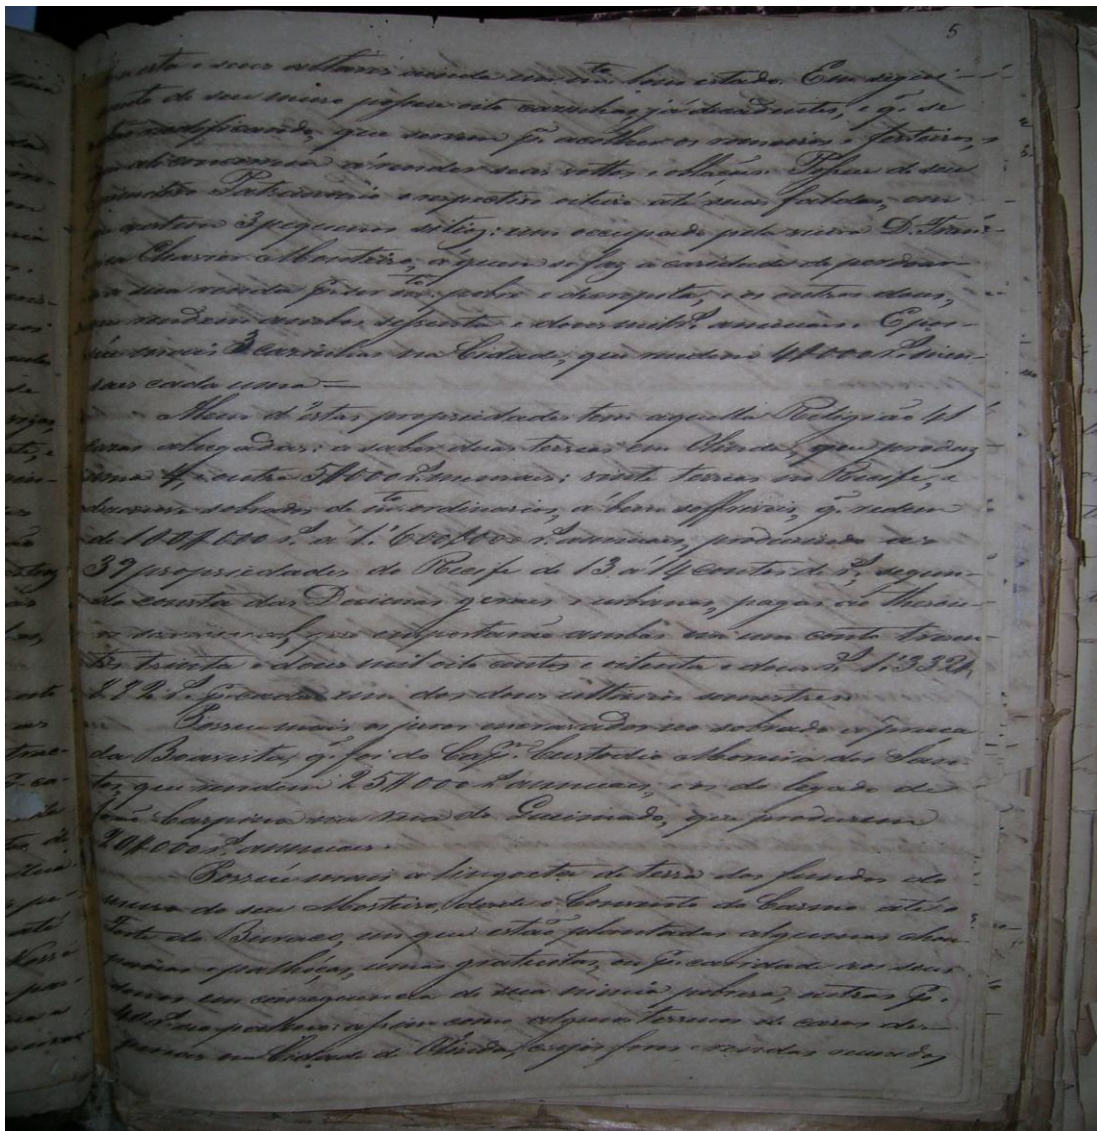 5
e seus altares ainda em m.to bom estado. Em segui-
mento do seu muro possue oito cazinhas já decadentes, e q. se
reedificando, que servem p.a acolher os romeiros e festeiros,
render seus vottos e oblaçoens. Possue do seu
Patrimonio o respectivo oiteiro até suas faldas, em
3 pequenos sitios: um occupado pela viuva D. Fran-
Xavier Monteiro, a quem se faz a caridade de perdoar
a sua renda p.r ser m.to pobre e os outros dous,
rendem ambos sessenta e dous mil r.s annuaes. E pos-
sue mais 3 cazinhas na Cidade, que rendem 4$000 r.s men-
saes cada uma =
Alem d'estas propriedades tem aquella Religião 41
cazas alugadas: a saber duas terreas em Olinda, que produz
uma 4, e outra 5$000 r.s mensaes: vinte terreas no Recife, e
dezenove sobrados de m.to ordinarios, á bem soffriveis, q. rendem
de 100$000 r.s á 1:600$000 r.s annuaes, produzindo as
39 propriedades do Recife de 13 a 14 contos de r.s, segun-
do consta das Decimas geraes e urbanas, pagas ao Thesou-
ro que importarão ambas em um conto trezen-
tos trinta e dous mil oito centos e oitenta e dous r.s 1:332$
p.a cada um dos dous ultimos semestres.
Possue mais os juros no sobrado á praça
da Boavista, q. foi do Cap.m Custodio Moreira dos San-
tos, que rendem 25$000 r.s annuaes, e os do legado de
Carpina na rua do Queimado, que produzem
20$000 r.s annuaes.
Possue mais a lingoeta de terra dos fundos do
muro do seu Mosteiro, desde o Convento do Carmo até o
Forte do Buraco, em que estão plantadas algumas chou-
panas e palhoças, umas gratuitas, ou p.r caridade aos seus
donos em consequencia de sua nimia pobreza, outras p.r
r.s ao palmo: assim como alguns terrenos de cazas
na Cidade de Olinda, cujos foros e rendas